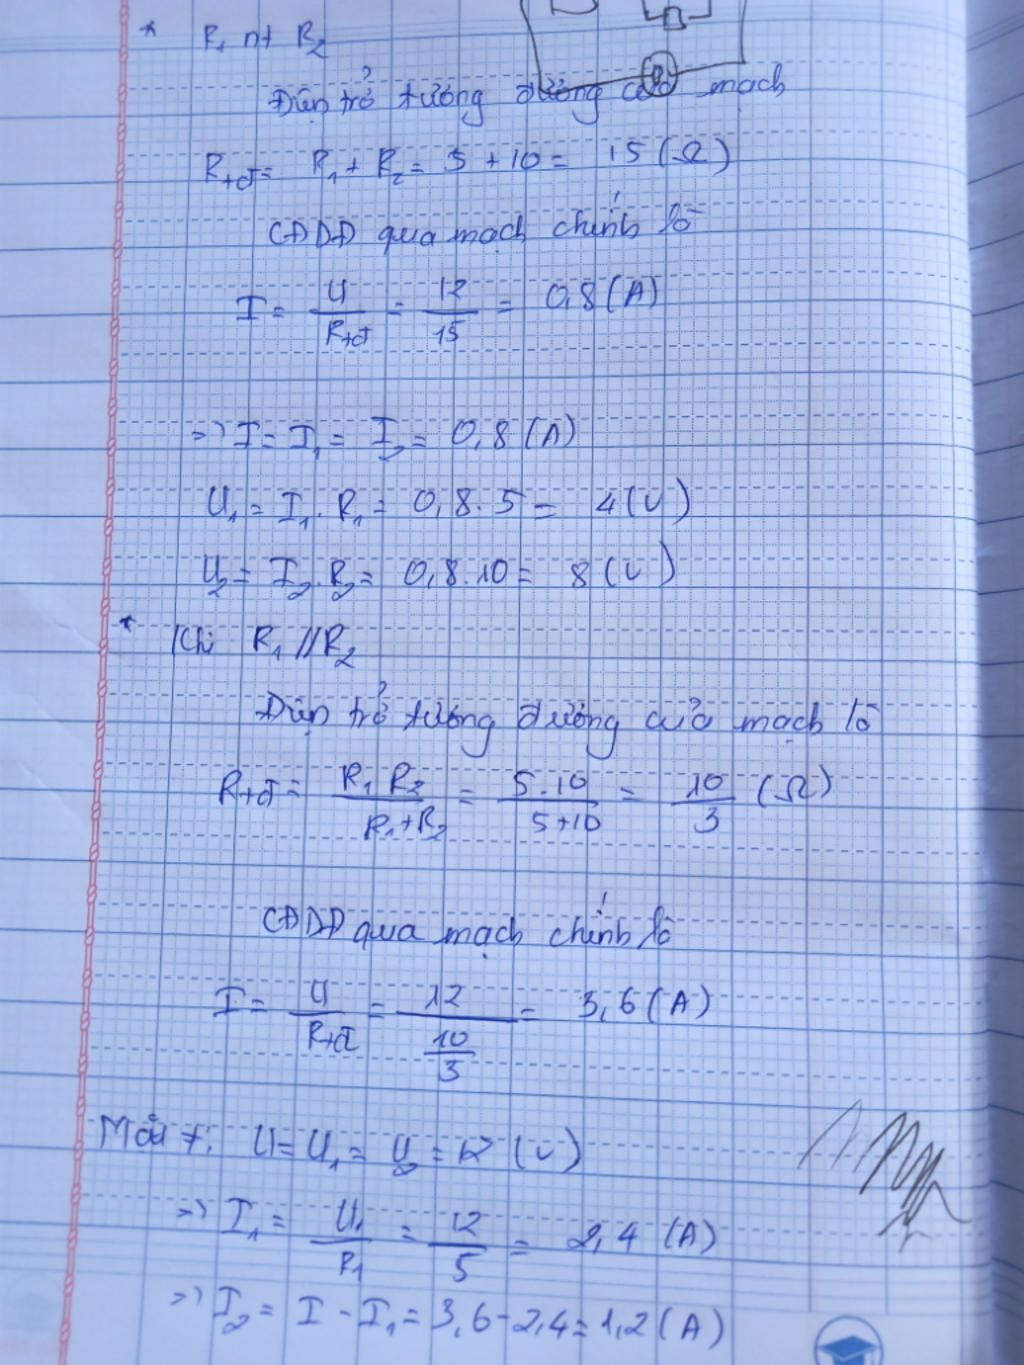 * R₁ nt R₂
Điện trở tương đương của mạch
Rtđ = R₁ + R₂ = 5 + 10 = 15 (Ω)
CĐDĐ qua mạch chính là
I = U/Rtđ = 12/15 = 0,8 (A)
=> I = I₁ = I₂ = 0,8 (A)
U₁ = I₁. R₁ = 0,8. 5 = 4 (V)
U₂ = I₂. R₂ = 0,8.10 = 8 (V)
* Khi R₁ // R₂
Điện trở tương đương của mạch là
Rtđ = R₁ R₂/R₁+R₂ = 5.10/5+10 = 10/3 (Ω)
CĐDĐ qua mạch chính là
I = U/Rtđ = 12/(10/3) = 3,6 (A)
U = U₁ = U₂ = 12 (V)
=> I₁ = U₁/R₁ = 12/5 = 2,4 (A)
=> I₂ = I - I₁ = 3,6 - 2,4 = 1,2 (A)